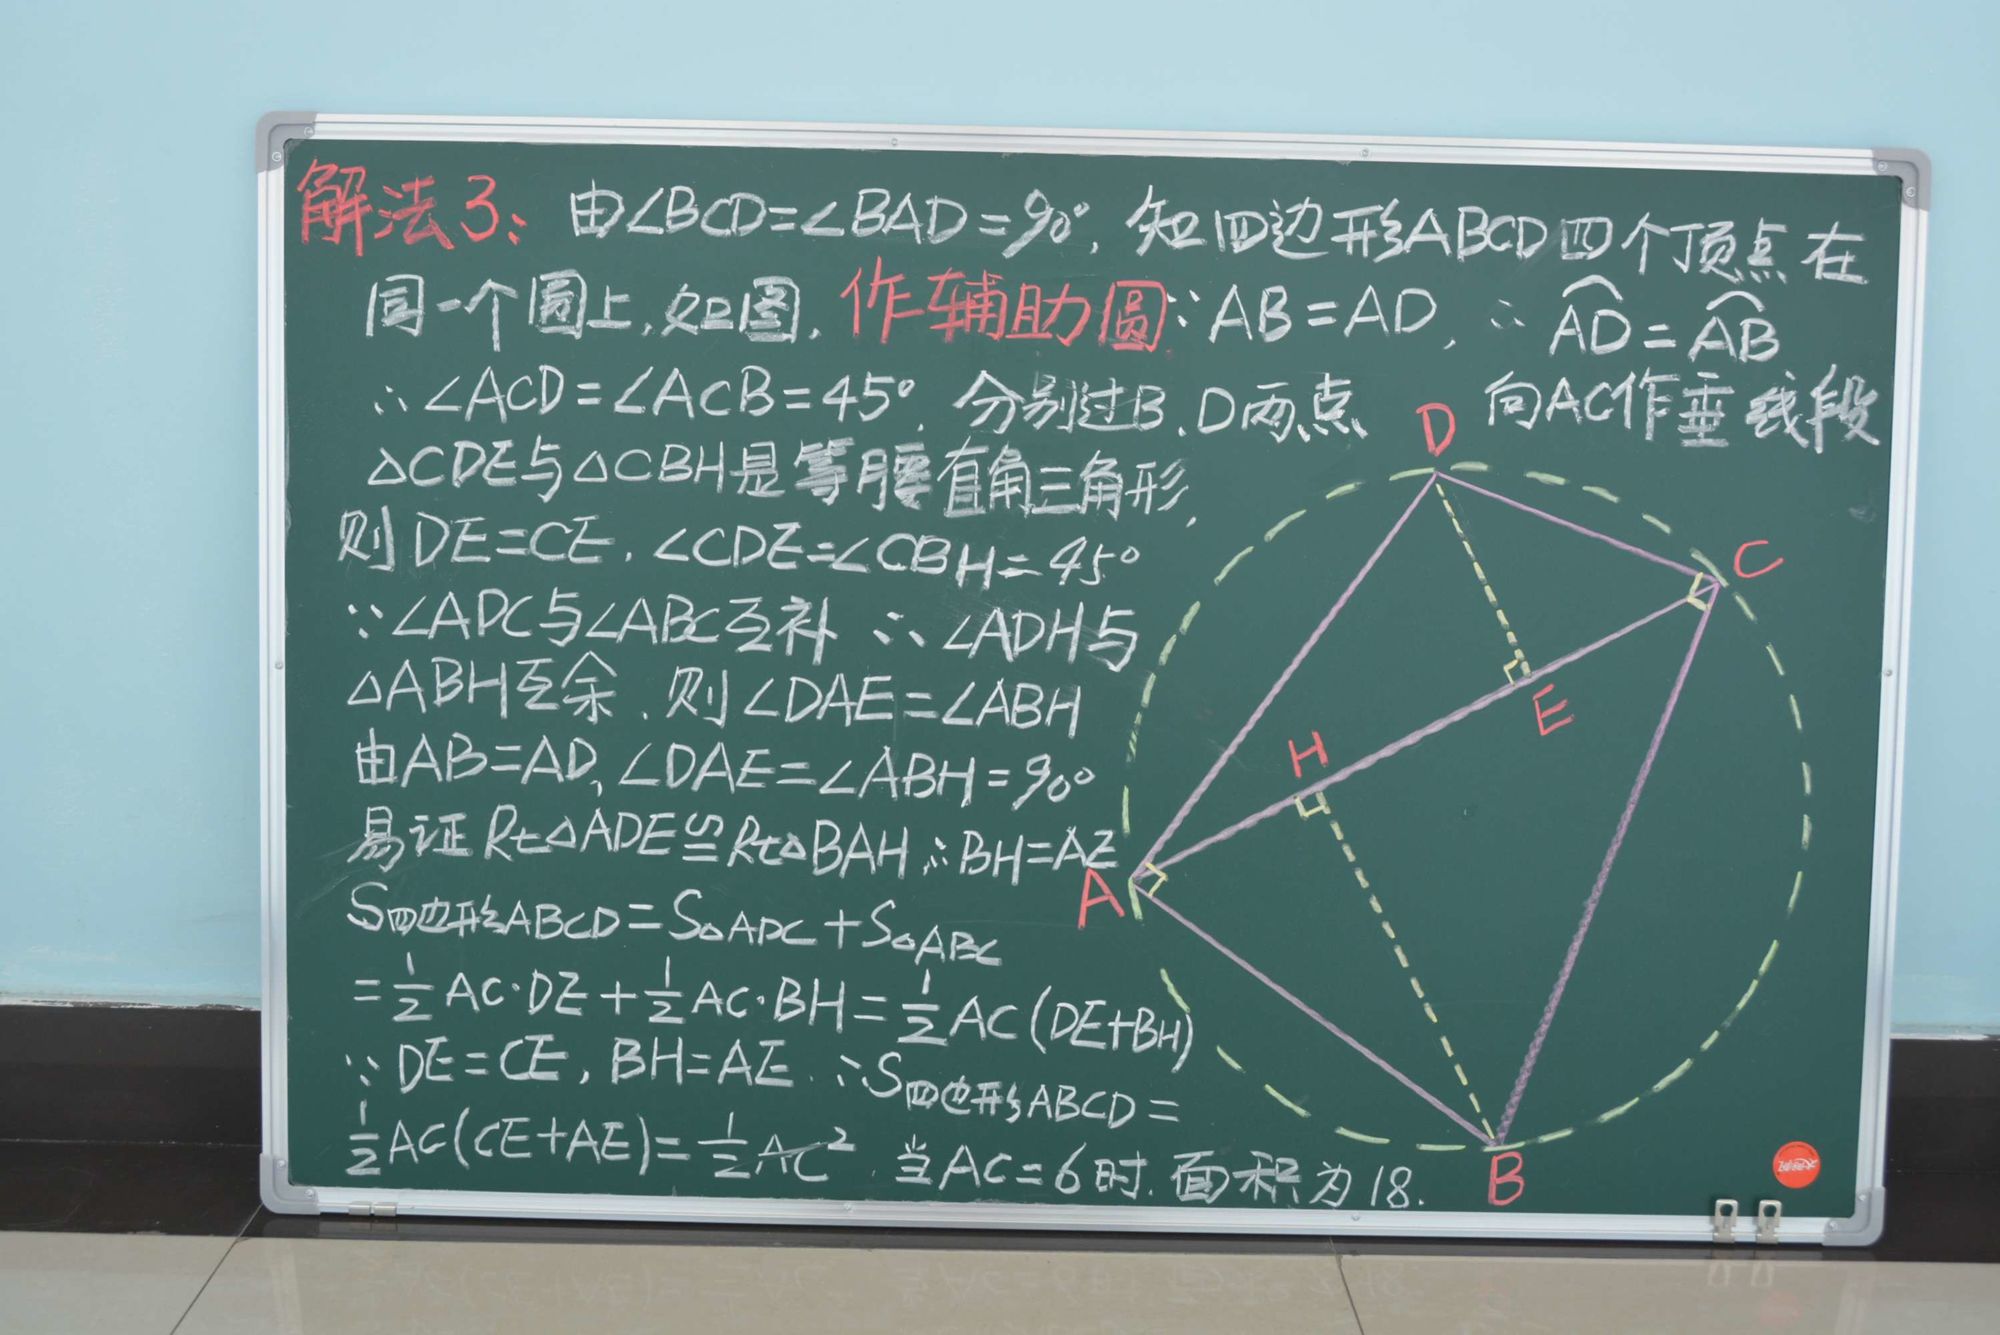 解法3: 由∠BCD=∠BAD=90°, 知四边形ABCD四个顶点在
同一个圆上,如图, 作辅助圆 ∵AB=AD, ∴ A͡D=A͡B
∴∠ACD=∠ACB=45°, 分别过B、D两点 向AC作垂线段
△CDE与△CBH是等腰直角三角形,
则DE=CE,∠CDE=∠CBH=45°
∵∠ADC与∠ABC互补 ∴∠ADH与
△ABH互余, 则∠DAE=∠ABH
由AB=AD,∠DAE=∠ABH=90°
易证Rt△ADE≌Rt△BAH∴BH=AE
S四边形ABCD=S△ADC+S△ABC
=1/2AC·DE+1/2AC·BH=1/2AC(DE+BH)
∵DE=CE,BH=AE.∴S四边形ABCD=
1/2AC(CE+AE)=1/2AC². 当AC=6时,面积为18.
D
C
E
H
A
B